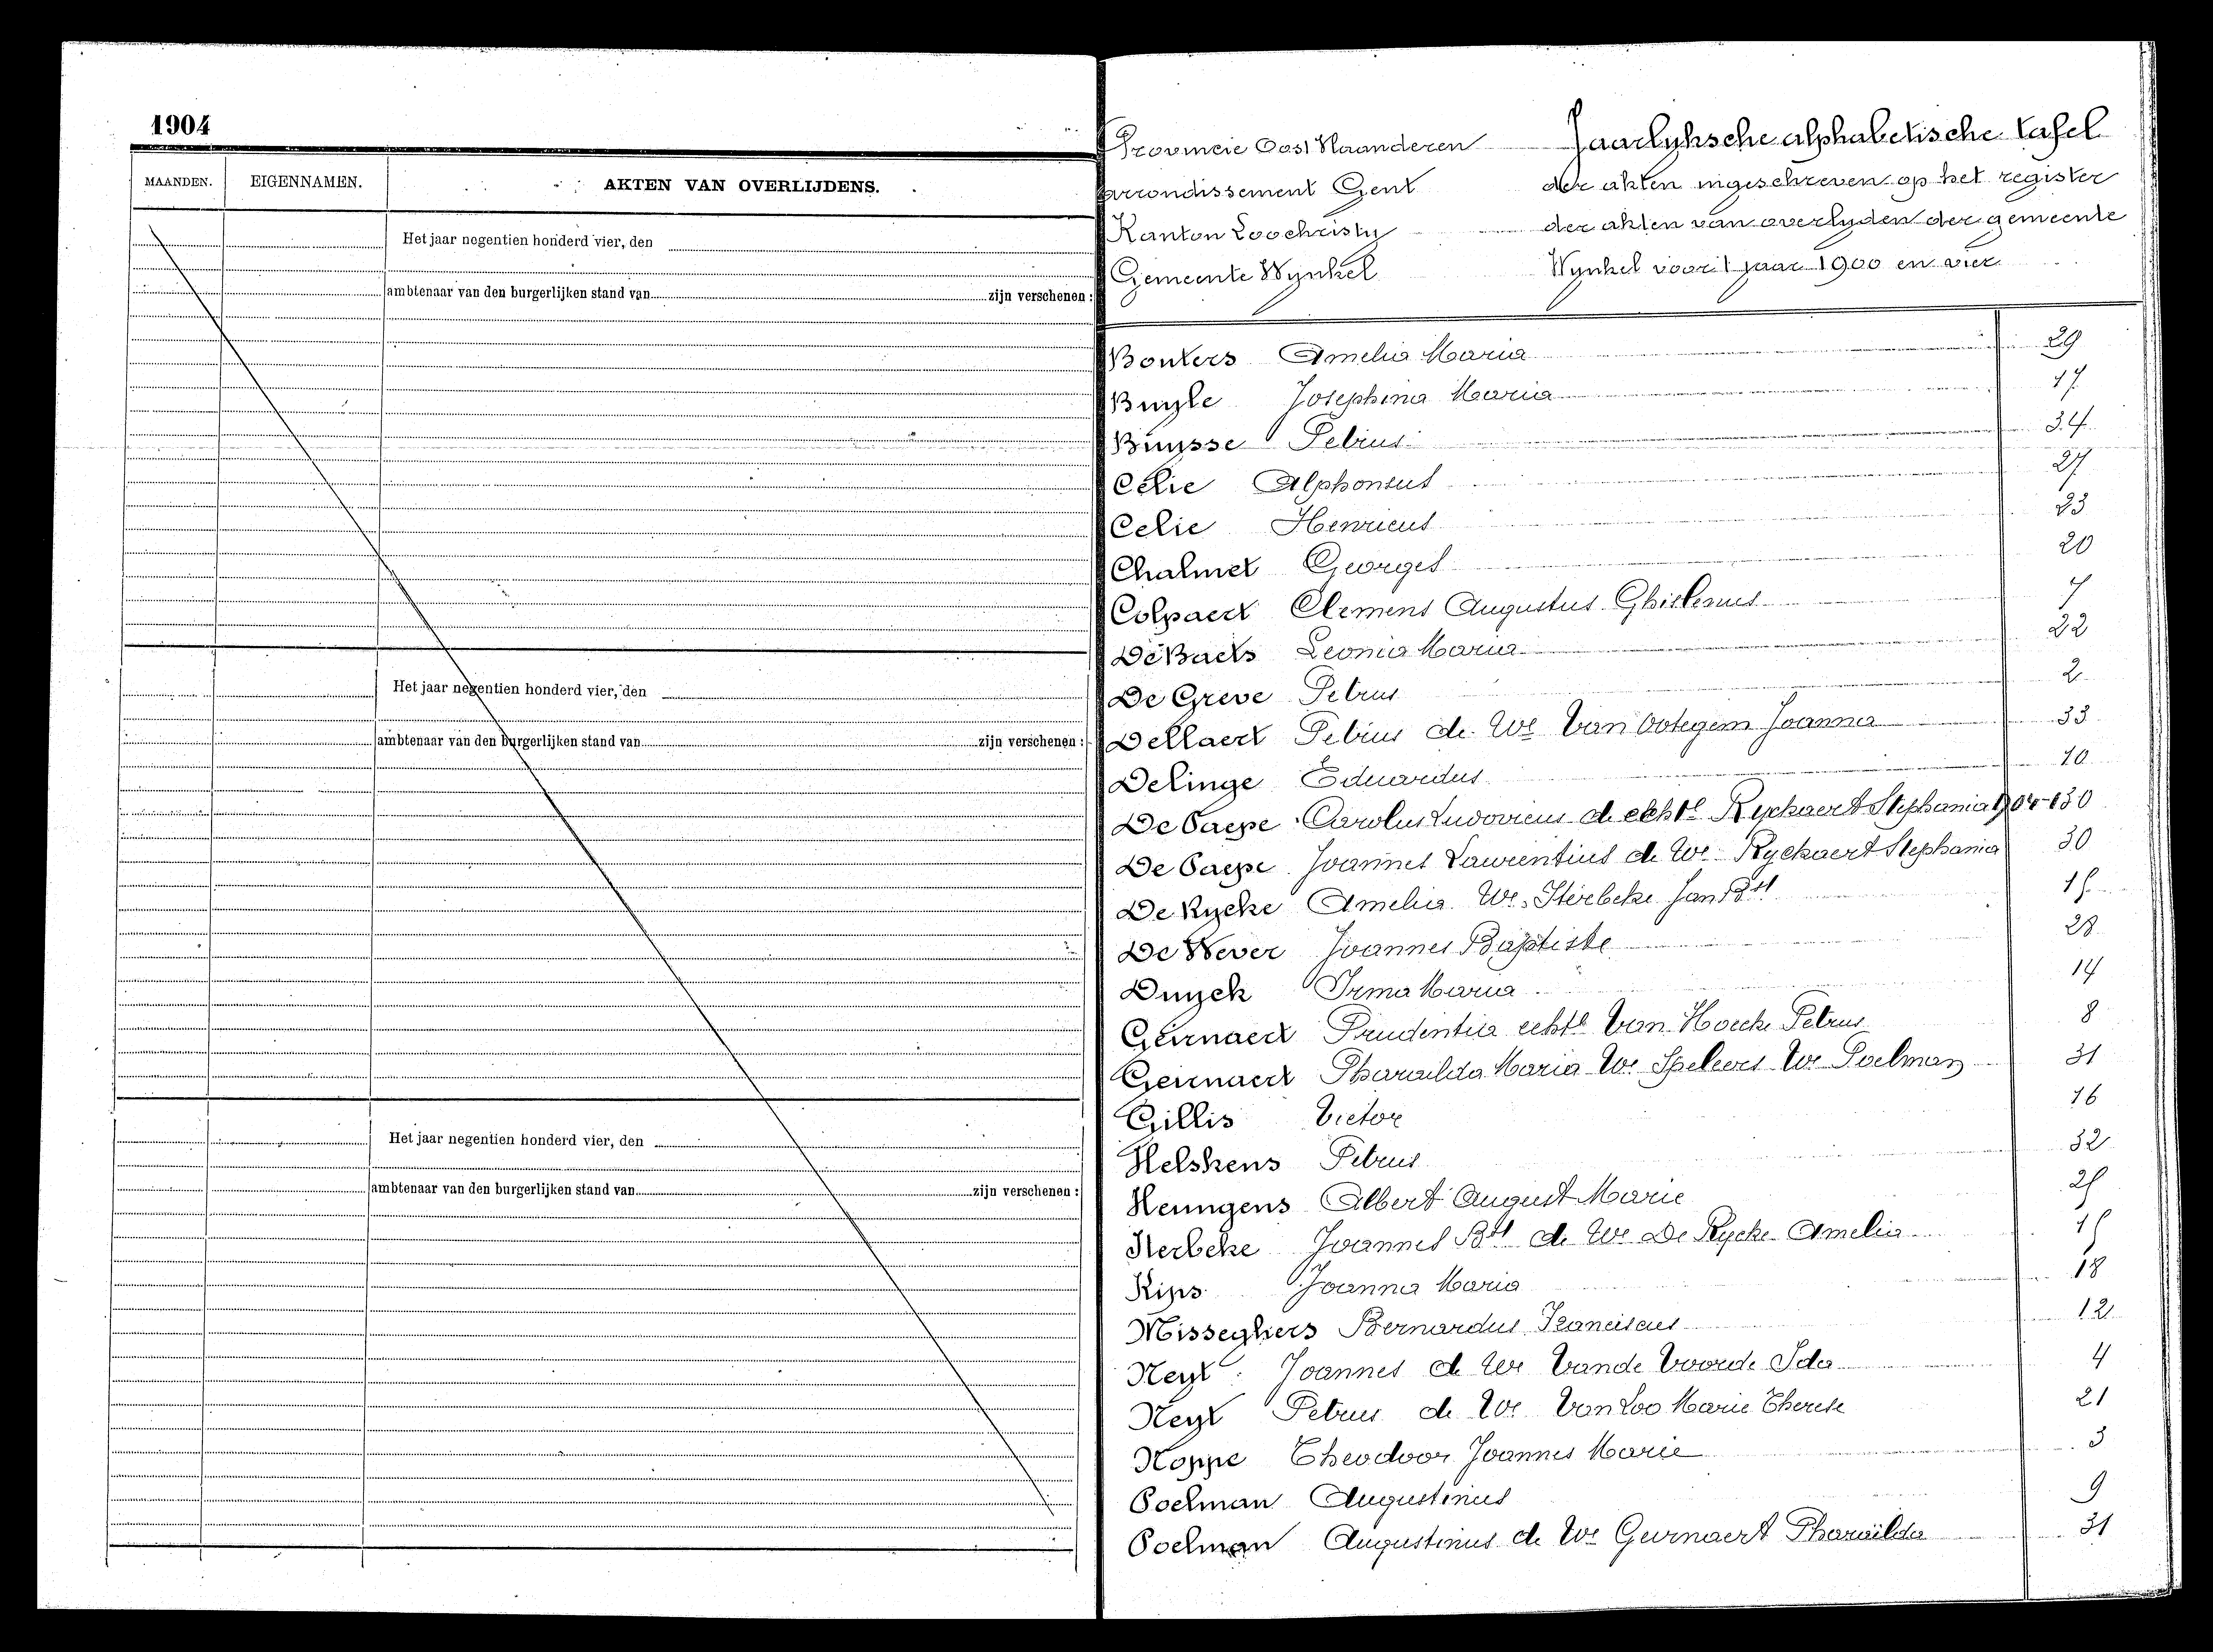 1904
MAANDEN. EIGENNAMEN. AKTEN VAN OVERLIJDENS.
Het jaar negentien honderd vier, den
ambtenaar van den burgerlijken stand van zijn verschenen :
Het jaar negentien honderd vier, den
ambtenaar van den burgerlijken stand van zijn verschenen :
Het jaar negentien honderd vier, den
ambtenaar van den burgerlijken stand van zijn verschenen :
Provincie Oost Vlaanderen Jaarlyksche alphabetische tafel
arrondissement Gent der akten ingeschreven op het register
Kanton Loochristy der akten van overlyden der gemeente
Gemeente Wynkel Wynkel voor 't jaar 1900 en vier
Bonters Amelia Maria 29
Buyle Josephina Maria 17
Buysse Petrus 34
Celie Alphonsus 27
Celie Henricus 23
Chalmet Georges 20
Colpaert Clemens Augustus Ghislenus 7
De Baets Leonia Maria 22
De Greve Petrus 2
Dellaert Petrus de We Van Ootegem Joanna 33
Delinge Eduardus 10
De Paepe Carolus Ludovicus de echte Ryckaert Stephania 30
De Paepe Joannes Laurentius de We Ryckaert Stephania 30
De Rycke Amelia We Sterbeke Jan Bte 15
De Wever Joannes Baptiste 28
Duyck Irma Maria 14
Geirnaert Prudentia echte Van Hoecke Petrus 8
Geirnaert Pharaïlda Maria We Speleers We Poelman 31
Gillis Victor 16
Helskens Petrus 32
Heungens Albert August Marie 25
Sterbeke Joannes Bte de We De Rycke Amelia 15
Kips Joanna Maria 18
Misseghers Bernardus Franciscus 12
Neyt Joannes de We Vande Voorde Ida 4
Neyt Petrus de We Van Loo Marie Therese 21
Noppe Theodoor Joannes Marie 3
Poelman Augustinus 9
Poelman Augustinus de We Geirnaert Pharaïlda 31